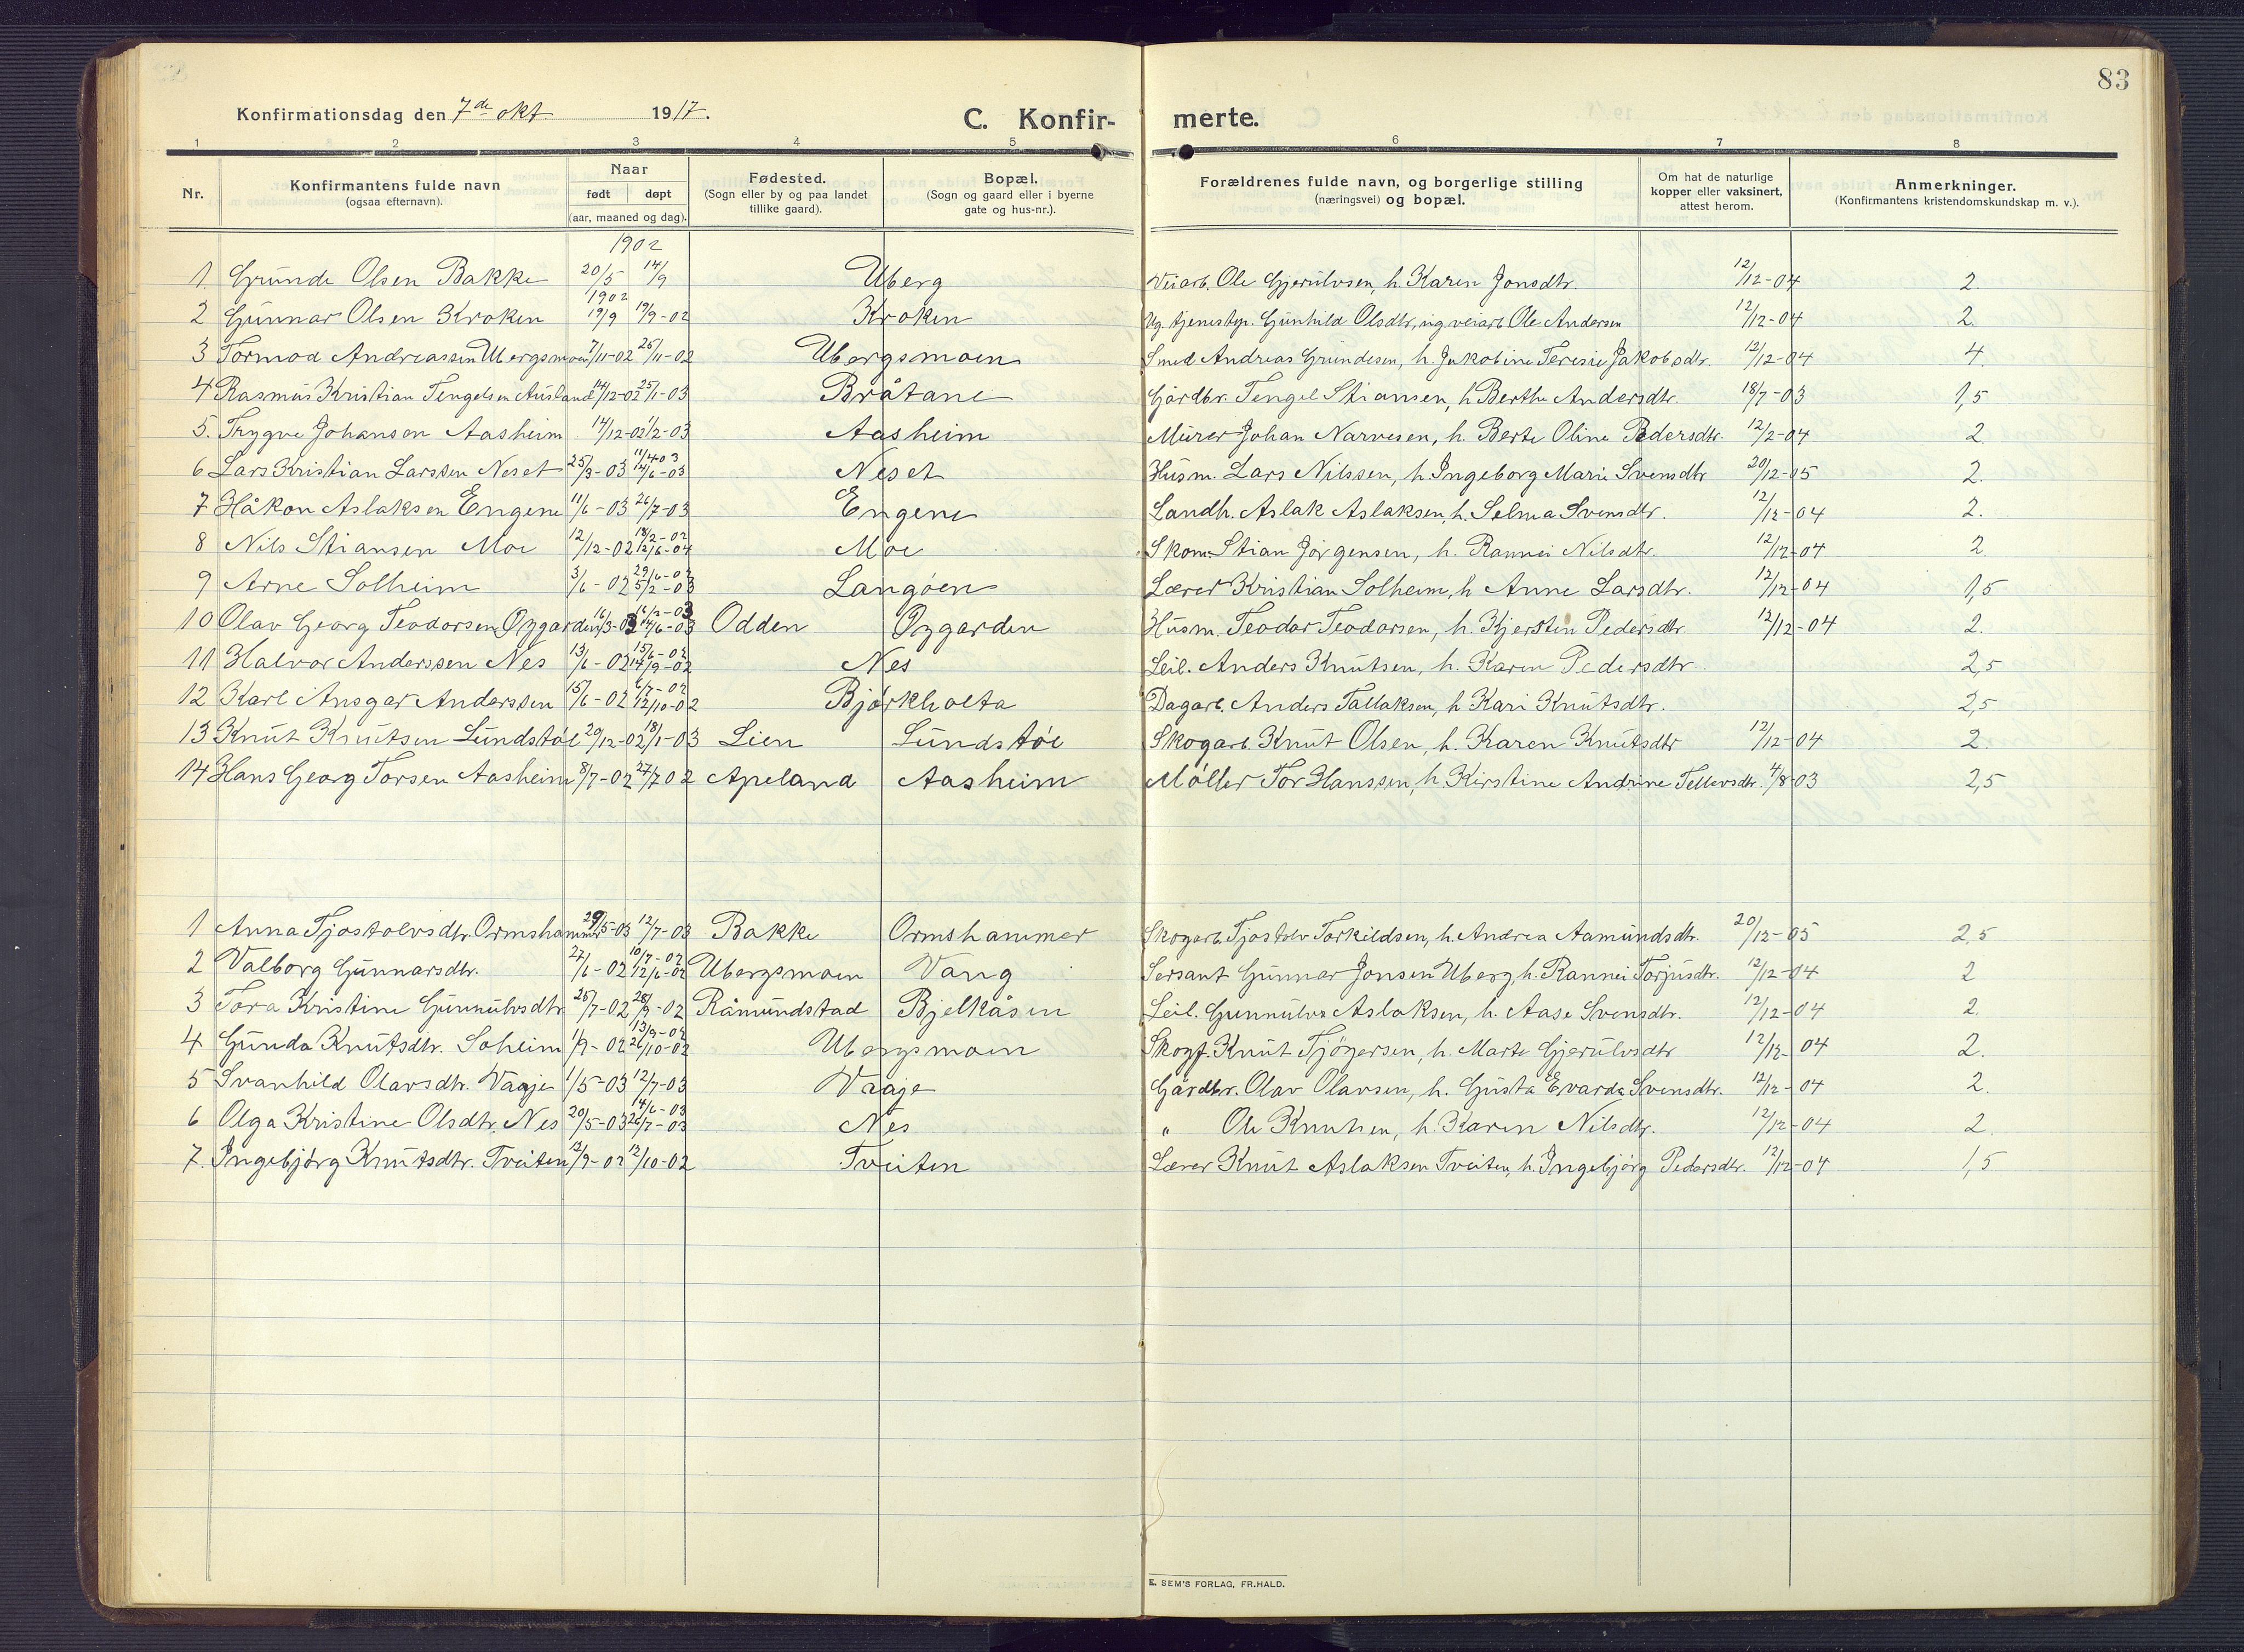 83
Konfirmationsdag den 7de okt 1917.
C. Konfir- merte.
1 2 3 4 5 6 7 8
Nr. Konfirmantens fulde navn (ogsaa efternavn). Naar født døpt (aar, maaned og dag). Fødested. (Sogn eller by og paa landet tillike gaard). Bopæl. (Sogn og gaard eller i byerne gate og hus-nr.). Forældrenes fulde navn, og borgerlige stilling (næringsvei) og bopæl. Om hat de naturlige kopper eller vaksinert, attest herom. Anmerkninger. (Konfirmantens kristendomskundskap m. v.).
1902
1 Grunde Olsen Bakke 20/5 14/9 Uberg Veiarb. Ole Gjerulvsen, h. Karen Jonsdtr. 12/12-04 2.
2 Gunnar Olsen Kroken 1902 19/9 19/9-02 Kroken Ug. tjenestep. Gunhild Olsdtr, ug. veiarb Ole Andersen 12/12-04 2.
3 Tormod Andreassen Ubergsmoen 7/11-02 26/11-02 Ubergsmoen Smed Andreas Grundesen, h. Jakobine Teresie Jakobsdtr. 12/12-04 4.
4 Rasmus Kristian Tengelsen Ausland 14/12-02 25/1-03 Bråtane Gårdbr. Tengel Stiansen, h. Berthe Andersdtr. 18/7-03 1,5
5. Trygve Johansen Aasheim 14/12-02 1/2-03 Aasheim Murer Johan Narvesen, h. Berte Oline Pedersdtr. 12/2-04 2.
6 Lars Kristian Larssen Neset 25/3-03 11/4 03 14/6-03 Neset Husm. Lars Nilssen, h. Ingeborg Marie Svensdtr 20/12-05 2.
7 Håkon Aslaksen Engene 11/6-03 26/7-03 Engene Landh. Aslak Aslaksen, h. Selma Svensdtr. 12/12-04 2.
8 Nils Stiansen Moe 12/12-02 12/6-04 Moe Skom. Stian Jørgensen, h. Rannei Nilsdtr. 12/12-04 2.
9 Arne Solheim 3/6-02 29/6-02 5/2-03 Langøen Lærer Kristian Solheim, h Anne Larsdtr. 12/12-04 1,5
10 Olav Georg Teodorsen Øygarden 16/3-03 14/6-03 Odden Øygarden Husm. Teodor Teodorsen, h. Kjersten Pedersdtr. 12/12-04 2.
11 Halvor Anderssen Nes 13/6-02 15/6-02 14/9-02 Nes Leil. Anders Knutsen, h. Karen Pedersdtr. 2,5
12 Karl Ansgar Anderssen 15/6-02 6/7-02 12/10-02 Bjørkholta Dagarb. Anders Tallaksen, h Kari Knutsdtr. 2,5
13 Knut Knutsen Lundstøl 29/12-02 18/1-03 Lien Lundstøl Skogarb. Knut Olsen, h. Karen Knutsdtr 12/12-04 2.
14 Hans Georg Torsen Aasheim 8/7-02 27/7 02 Apeland Aasheim Møller Tor Hanssen, h. Kirstine Andrine Tellevsdtr. 4/8-03 2,5
1 Anna Tjostolvsdtr. Ormshammer 29/5-03 12/7-03 Bakke Ormshammer Skogarb. Tjostolv Torkildsen, h. Andrea Aamundsdtr. 20/12-05 2,5
2 Valborg Gunnarsdtr. 27/6-02 10/7-02 12/6-02 Ubergsmoen Vang Sersant Gunnar Jonsen Uberg, h. Rannei Torjusdtr. 12/12-04 2
3 Tora Kristine Gunnulvsdtr. 26/7-02 28/9-02 Råmundstad Bjelkåsen Leil. Gunnulv Aslaksen, h. Aase Svensdtr. 12/12-04 2.
4 Gunda Knutsdtr. Soheim 1/9-02 13/9-02 26/10-02 Ubergsmoen Skogf. Knut Tjøgersen, h. Marte Gjerulvsdtr 12/12-04 2.
5 Svanhild Olavsdtr. Vaaje 1/5-03 12/7-03 Vaaje Gårdbr. Olav Olavsen, h. Gusta Evarda Svensdtr. 12/12-04 2.
6 Olga Kristine Olsdtr. Nes 20/5-03 14/6-03 26/7-03 Nes " Ole Knutsen, h. Karen Nilsdtr. 12/12-04 2.
7. Ingebjørg Knutsdtr. Tveiten 12/9-02 12/10-02 Tveiten Lærer Knut Aslaksen Tveiten, h. Ingebjørg Pedersdtr. 12/12-04 1,5
E. SEM'S FORLAG, FR.HALD.